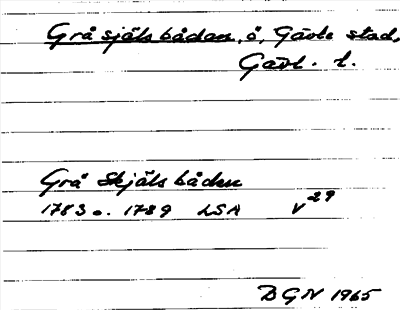 Gråsjälsbådan, ö, Gävle stad,
Gävl. l.
Grå Skjälsbådan
1783 o. 1789 LSA V29
DGN 1965